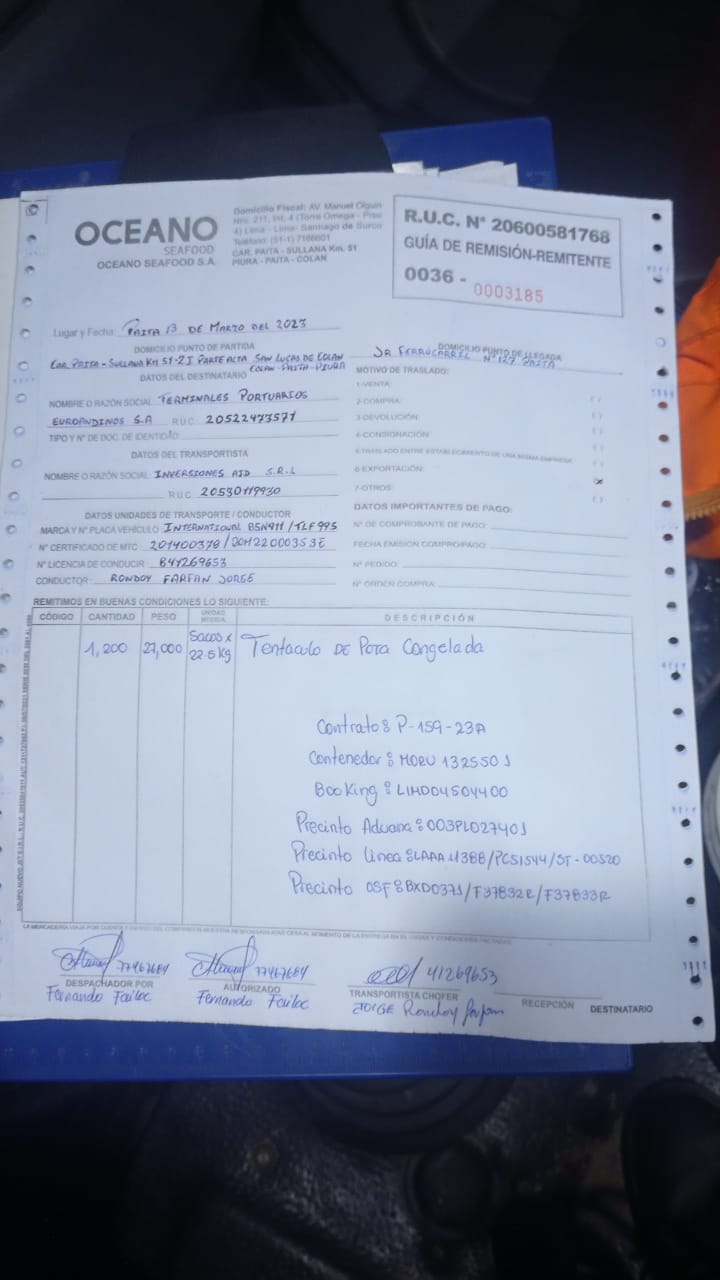 OCEANO
SEAFOOD
OCEANO SEAFOOD S.A.
Domicilio Fiscal: AV. Manuel Olguin
Nro. 211, Int. 4 (Torre Omega - Piso
4) Lima - Lima- Santiago de Surco
Teléfono: (51-1) 7166601
CAR. PAITA - SULLANA Km. 51
PIURA - PAITA - COLAN
R.U.C. N° 20600581768
GUÍA DE REMISIÓN-REMITENTE
0036 - 0003185
Lugar y Fecha: PAITA 13 DE MARZO DEL 2023
DOMICILIO PUNTO DE PARTIDA
CAR. PAITA-SULLANA KM 51-2 I PARTE ALTA SAN LUCAS DE COLAN
COLAN-PAITA-PIURA
DOMICILIO PUNTO DE LLEGADA
JR FERROCARRIL N° 127 PAITA
DATOS DEL DESTINATARIO
NOMBRE O RAZÓN SOCIAL: TERMINALES PORTUARIOS
EUROANDINOS S.A RUC: 20522473571
TIPO Y N° DE DOC. DE IDENTIDAD:
MOTIVO DE TRASLADO:
1-VENTA: ( )
2-COMPRA: ( )
3-DEVOLUCIÓN: ( )
4-CONSIGNACIÓN: ( )
5-TRASLADO ENTRE ESTABLECIMIENTO DE UNA MISMA EMPRESA ( )
6-EXPORTACIÓN: (x)
7-OTROS: ( )
DATOS DEL TRANSPORTISTA
NOMBRE O RAZÓN SOCIAL: INVERSIONES AJD S.R.L
RUC: 20530119930
DATOS UNIDADES DE TRANSPORTE / CONDUCTOR
MARCA Y N° PLACA VEHÍCULO: INTERNATIONAL BSN911/TLF995
N° CERTIFICADO DE MTC: 201400378/20H22000353E
N° LICENCIA DE CONDUCIR: B41269653
CONDUCTOR: RONDOY FARFAN JORGE
DATOS IMPORTANTES DE PAGO:
N° DE COMPROBANTE DE PAGO:
FECHA EMISIÓN COMPRO/PAGO:
N° PEDIDO:
N° ORDER COMPRA:
REMITIMOS EN BUENAS CONDICIONES LO SIGUIENTE:
CÓDIGO CANTIDAD PESO UNIDAD MEDIDA DESCRIPCIÓN
1,200 27,000 Sacos x 22.5 Kg Tentaculo DE Pota Congelada
Contrato: P-159-23A
Contenedor: MORU 1325501
Booking: LIMD04504400
Precinto Aduana: 003PL027401
Precinto Linea: LAAA11388/PCS1544/ST-00520
Precinto OSF: BXD0371/F37832R/F37833R
77467684
DESPACHADOR POR
Fernando Failoc
77467684
AUTORIZADO
Fernando Failoc
41269653
TRANSPORTISTA CHOFER
JORGE Rondoy Farfan
RECEPCIÓN DESTINATARIO